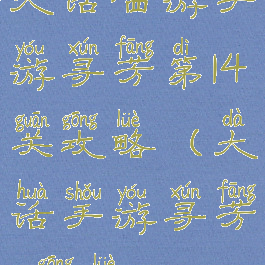 yóu xún fāng dì
游寻芳第14
guān gōng lüè dà
关攻略（大
huà shǒu yóu xún fāng
话手游寻芳
gōng lüè